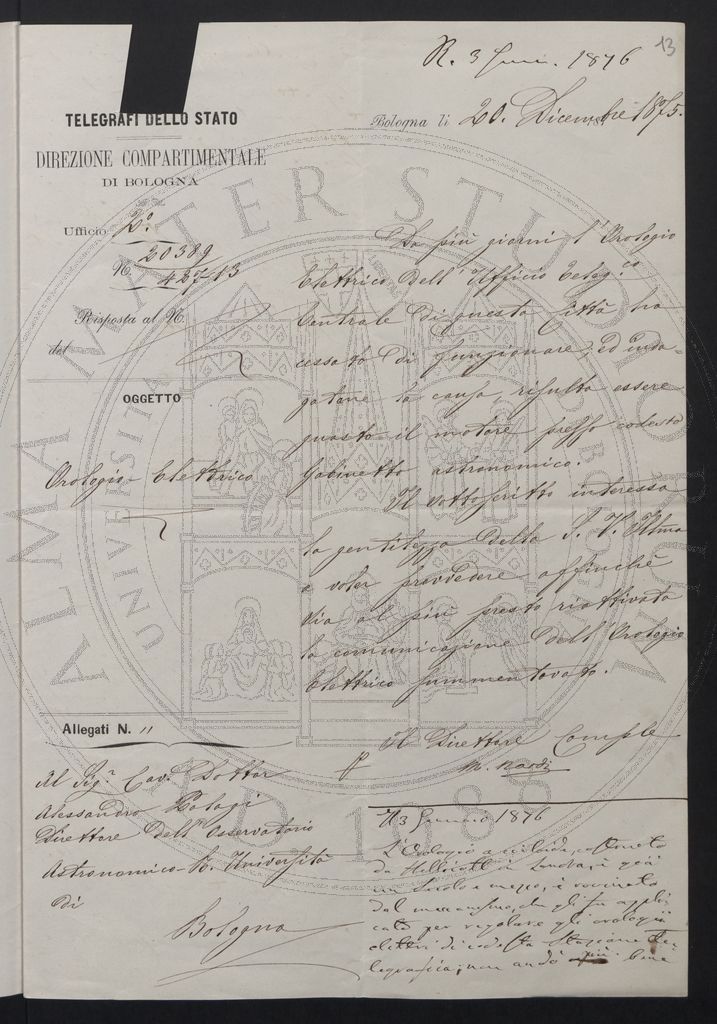 13
R. 3 Genn. 1876
TELEGRAFI DELLO STATO
DIREZIONE COMPARTIMENTALE
DI BOLOGNA
Bologna li 20. Dicembre 1875.
Ufficio 2º
N. 20389
427/13
Risposta al N.
del
OGGETTO
Orologio Elettrico
Da più giorni l'Orologio
Elettrico dell'Ufficio Teleg.co
Centrale di questa Città ha
cessato di funzionare, ed inda-
gatane la causa, risulta essere
guasto il motore presso codesto
Gabinetto astronomico.
Il sottoscritto interessa
la gentilezza della S. V. Illma
a voler provvedere affinchè
sia al più presto riattivata
la comunicazione dell'Orologio
Elettrico summentovato.
Il Direttore Comple
M. Nardi
Allegati N. 11
Al Sig.r Cav. Dottor
Alessandro Palagi
Direttore dell'Osservatorio
Astronomico - R. Università
di
Bologna
3 Gennaio 1876
L'Orologio a cicloide, costruito
da Hellicott in Londra, è già
un secolo e mezzo, è rovinato
dal meccanismo, che gli fu appli
cato per regolare gli orologi
elettrici di codesta Stazione Te-
legrafica; non andò più bene
ALMA MATER STUDIORUM
UNIVERSITÀ
A.D. 1088